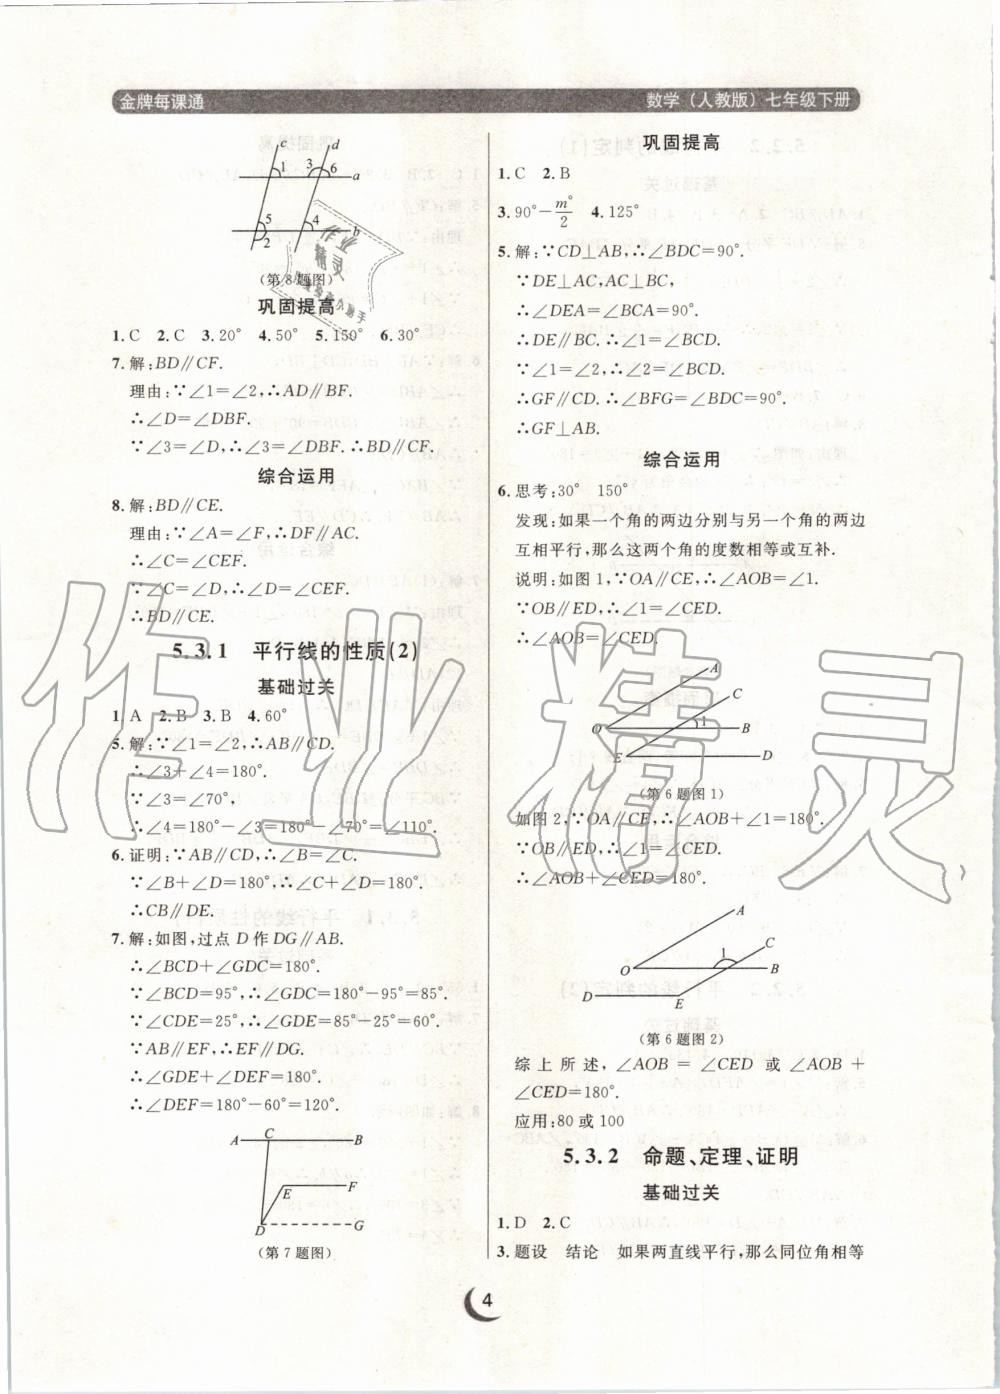 金牌每课通
数学(人教版)七年级下册
c d
1 3 6
a
5 4
2 b
(第8题图)
巩固提高
1. C 2. C 3. 20° 4. 50° 5. 150° 6. 30°
7. 解:BD∥CF.
理由:∵∠1=∠2,∴AD∥BF.
∴∠D=∠DBF.
∵∠3=∠D,∴∠3=∠DBF. ∴BD∥CF.
综合运用
8. 解:BD∥CE.
理由:∵∠A=∠F,∴DF∥AC.
∴∠C=∠CEF.
∵∠C=∠D,∴∠D=∠CEF.
∴BD∥CE.
5.3.1 平行线的性质(2)
基础过关
1. A 2. B 3. B 4. 60°
5. 解:∵∠1=∠2,∴AB∥CD.
∴∠3+∠4=180°.
∵∠3=∠70°,
∴∠4=180°-∠3=180°-∠70°=∠110°.
6. 证明:∵AB∥CD,∴∠B=∠C.
∵∠B+∠D=180°,∴∠C+∠D=180°.
∴CB∥DE.
7. 解:如图,过点D作DG∥AB.
∴∠BCD+∠GDC=180°.
∵∠BCD=95°,∴∠GDC=180°-95°=85°.
∵∠CDE=25°,∴∠GDE=85°-25°=60°.
∵AB∥EF,∴EF∥DG.
∴∠GDE+∠DEF=180°.
∴∠DEF=180°-60°=120°.
A C B
E F
D G
(第7题图)
巩固提高
1. C 2. B
3. 90°-m°/2 4. 125°
5. 解:∵CD⊥AB,∴∠BDC=90°.
∵DE⊥AC,AC⊥BC,
∴∠DEA=∠BCA=90°.
∴DE∥BC. ∴∠1=∠BCD.
∵∠1=∠2,∴∠2=∠BCD.
∴GF∥CD. ∴∠BFG=∠BDC=90°.
∴GF⊥AB.
综合运用
6. 思考:30° 150°
发现:如果一个角的两边分别与另一个角的两边
互相平行,那么这两个角的度数相等或互补.
说明:如图1,∵OA∥CE,∴∠AOB=∠1.
∵OB∥ED,∴∠1=∠CED.
∴∠AOB=∠CED.
A
C
O 1 B
E D
(第6题图1)
如图2,∵OA∥CF,∴∠AOB+∠1=180°.
∵OB∥ED,∴∠1=∠CED.
∴∠AOB+∠CED=180°.
A
C
1
O B
D E
(第6题图2)
综上所述,∠AOB=∠CED 或 ∠AOB+
∠CED=180°.
应用:80或100
5.3.2 命题、定理、证明
基础过关
1. D 2. C
3. 题设 结论 如果两直线平行,那么同位角相等
4
作业精灵